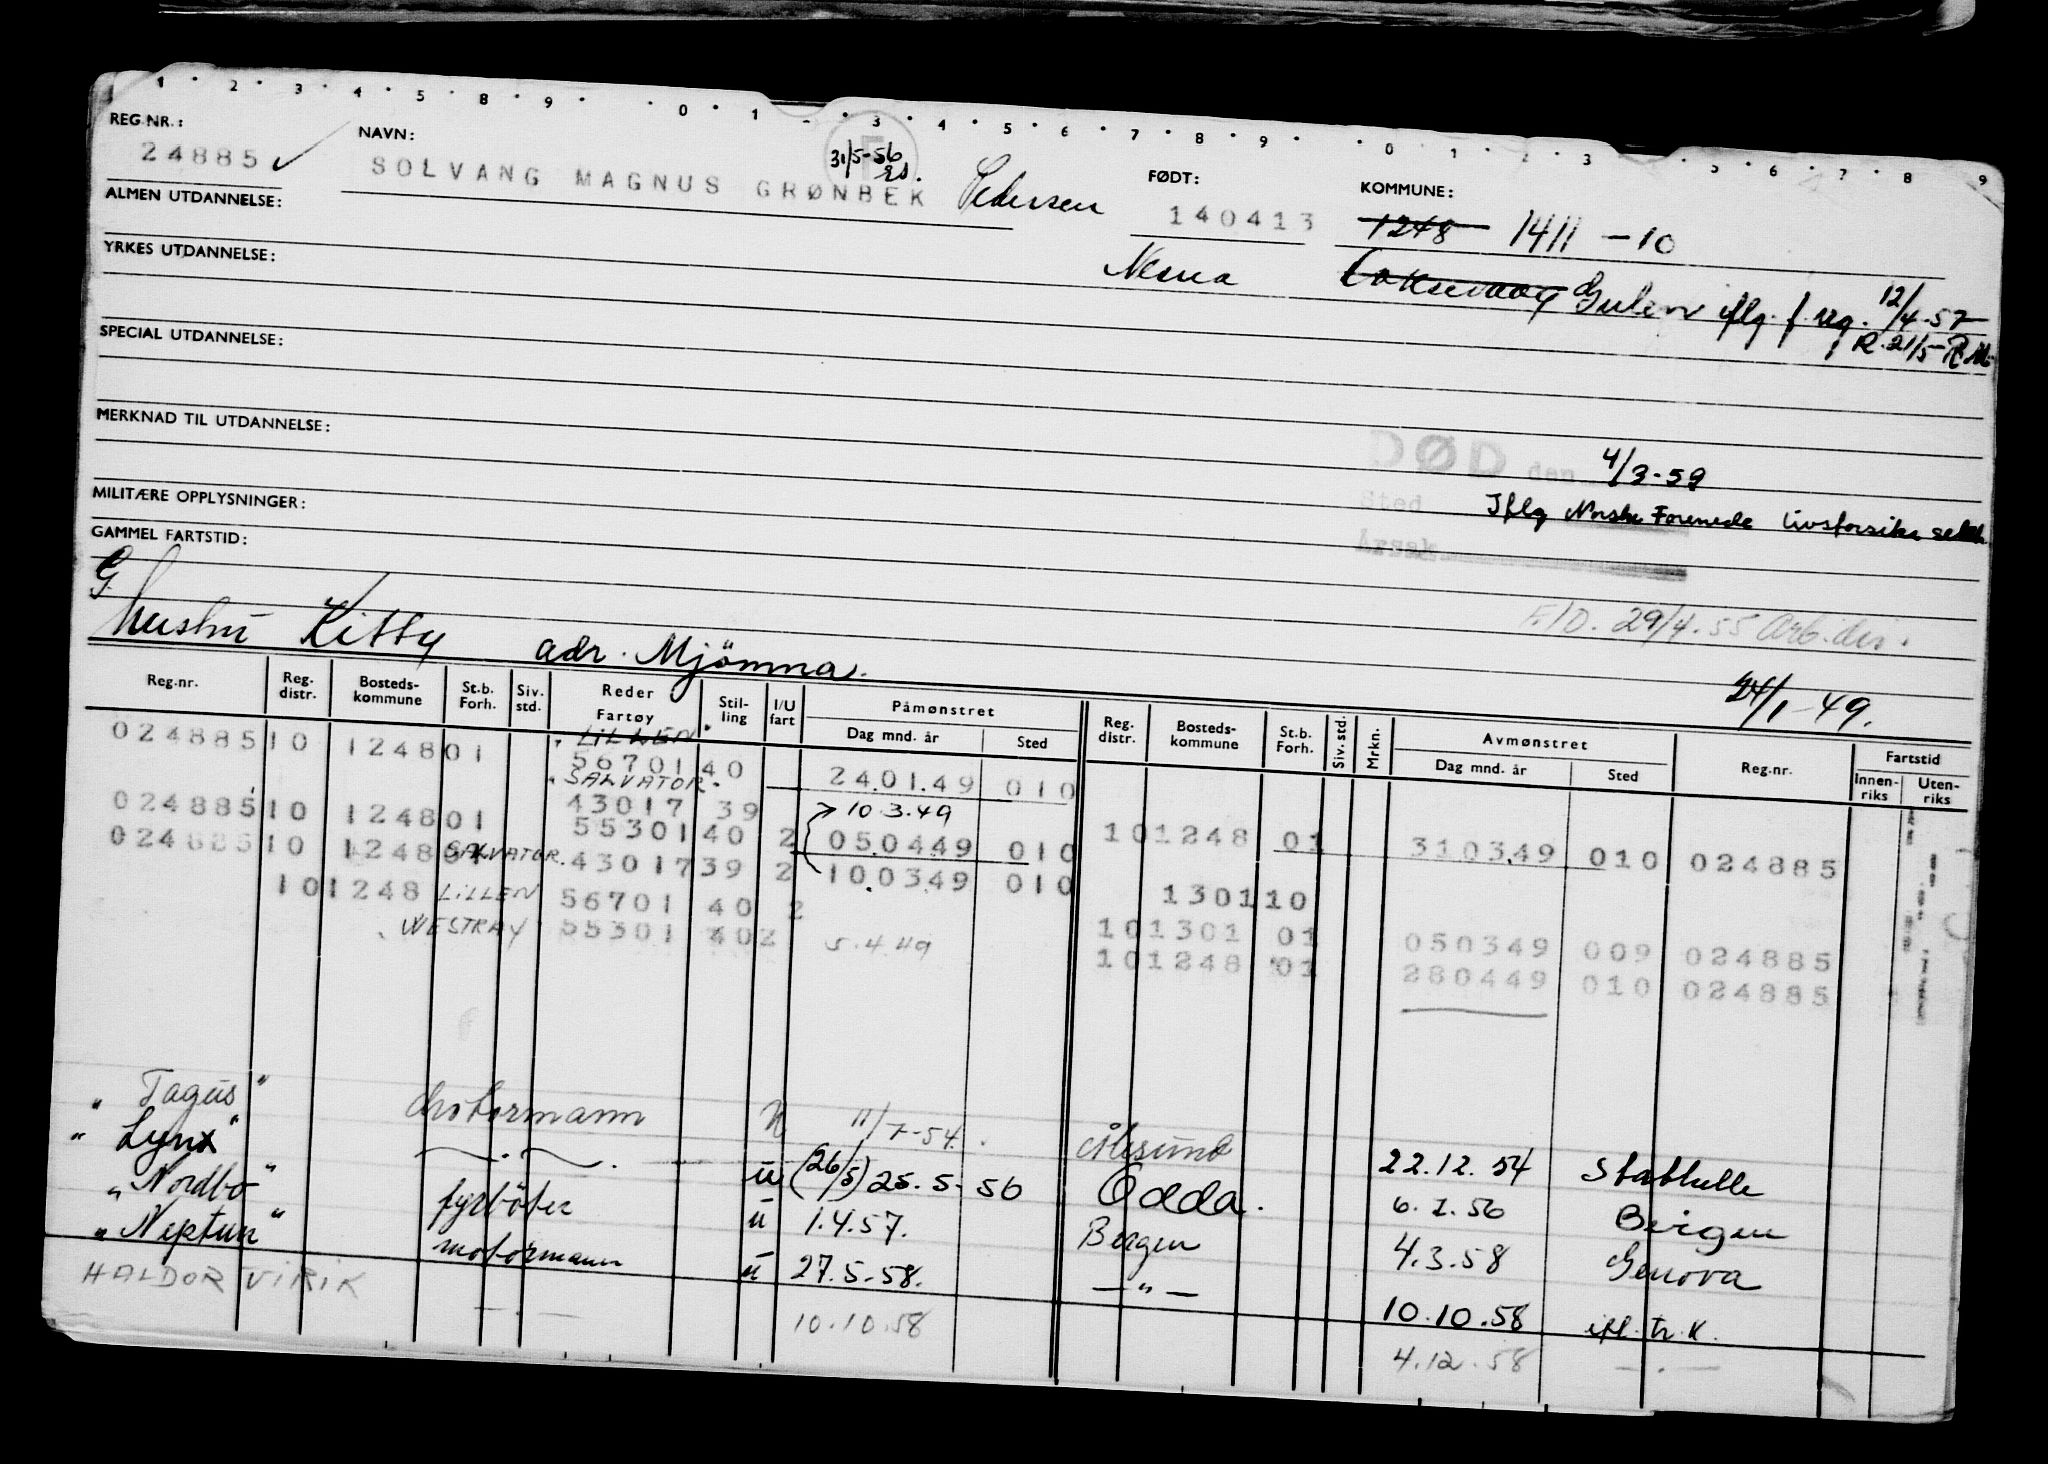 1 2 3 4 5 8 9 0 1 3 4 5 6 7 8 9 0 1 2 3 5 6 7 8 9
REG.NR.: NAVN: FØDT: KOMMUNE:
24885 ✓ SOLVANG MAGNUS GRØNBEK Pedersen 140413 1248 1411 - 10
31/5-56
ALMEN UTDANNELSE:
Nesna Gulen iflg. f. reg. 12/4-57
R. 21/5-
YRKES UTDANNELSE:
SPECIAL UTDANNELSE:
MERKNAD TIL UTDANNELSE:
DØD den 4/3-59
MILITÆRE OPPLYSNINGER:
Sted Iflg Norske Forenede livsforsikr. selsk.
GAMMEL FARTSTID:
Årsak
G.
F.I.D. 29/4.55 Arb.dir.
hustru Kitty adr. Mjömna.
24/1-49.
Reg.nr. Reg. distr. Bosteds-kommune St.b. Forh. Siv. std. Reder Fartøy Stil-ling I/U fart Påmønstret Dag mnd. år Sted Reg. distr. Bosteds-kommune St.b. Forh. Siv. std. Mrkn. Avmønstret Dag mnd. år Sted Reg.nr. Fartstid Innen-riks Uten-riks
LILLEN
024885 10 1248 01 56701 40 240149 010
SALVATOR
43017 39 10.3.49
024885 10 1248 01 55301 40 2 050449 010 10 1248 01 310349 010 024885
024885 10 1248 01 SALVATOR. 43017 39 2 100349 010
10 1248 LILLEN 56701 40 2 1301 10
WESTRAY 55301 40 2 5.4.49 10 1301 01 050349 009 024885
10 1248 01 280449 010 024885
"Tagus" motormann 11/7-54. Ålesund 22.12.54 Stathelle
"Lynx" —.— u (26/5) 25.5-56 Odda. 6.7.56 Bergen
"Nordbo" fyrböter u 1.4.57. Bergen 4.3.58 Genova
"Neptun" motormann u 27.5-58. —"— 10.10.58 ifl. tr.k.
HALDOR VIRIK —.— 10.10.58 4.12.58 —.—